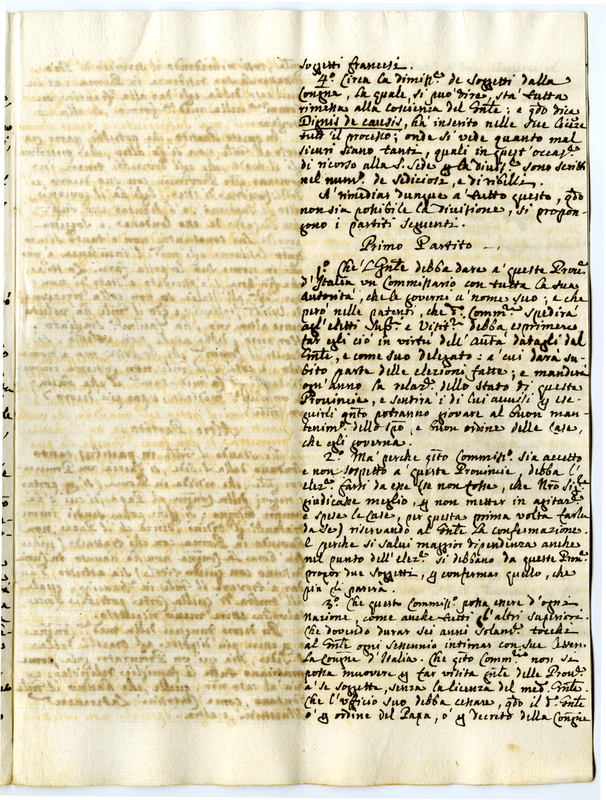 soggetti francesi.
4.º Circa la dimiss.e de soggetti dalla
Congne, la quale, si può dire, sta tutta
rimessa alla coscienza del Gnle: e qdo dice
Dignis de causis, ha inserito nelle sue
tutt'il processo; onde si vede quanto mal
sicuri siano tanti, quali in quest'occas.e
di ricorso alla S. Sede p la divis.e sono scritti
nel num.o de sediciosi, e di ribelli.
A' rimediar dunque a' tutto questo, qdo
non sia possibile la divisione, si propon-
gono i partiti seguenti.
Primo Partito
1.º Che l'Gnle debba dare a' queste Prou.e
d'Italia un Commissario con tutta la sua
autorità, che le governi a' nome suo; e che
però nelle patenti, che d.o Comm.o spedirà
agl'eletti e Visit.ri debba esprimere
far egli ciò in virtù dell'Auttà datagli dal
Gnle, e come suo delegato: a' cui darà su-
bito parte delle elezioni fatte; e manderà
ogn'anno la relaz.e dello stato di queste
Provincie, e sentirà i di lui avvisi p ese-
guirli qnto potranno giovare al buon man-
tenim.o dello spo, e buon ordine delle Case,
che egli governa.
2.º Ma' perche qsto Commiss.o sia accetto
e non sospetto a' queste Provincie, debba l'
elez.e farsi da esse (se non fosse, che Nro Sig.re
giudicasse meglio, p non metter in agitaz.e
e spese le Case, per questa prima volta farla
da se) riservando al Gnle la confermazione.
E perche si salui maggior dipendenza anche
nel punto dell'elez.e si debbano da queste Prou.e
propor due soggetti, p confermar quello, che
più gli parerà.
3.º Che questo Commiss.o possa essere d'ogni
Nazione, come anche tutti gl'altri superiori.
Che dovendo durar sei anni solam.te tocchi
al Gnle ogni sessennio intimar con sue
la Congne d'Italia. Che qsto Comm.o non se
possa muovere p far visita Gnle delle Prou.e
a' se soggette, senza la licenza del med.o Gnle.
Che l'ufficio suo debba cessare, qdo il d.o Gnle
ò p ordine del Papa, ò p decreto della Congne